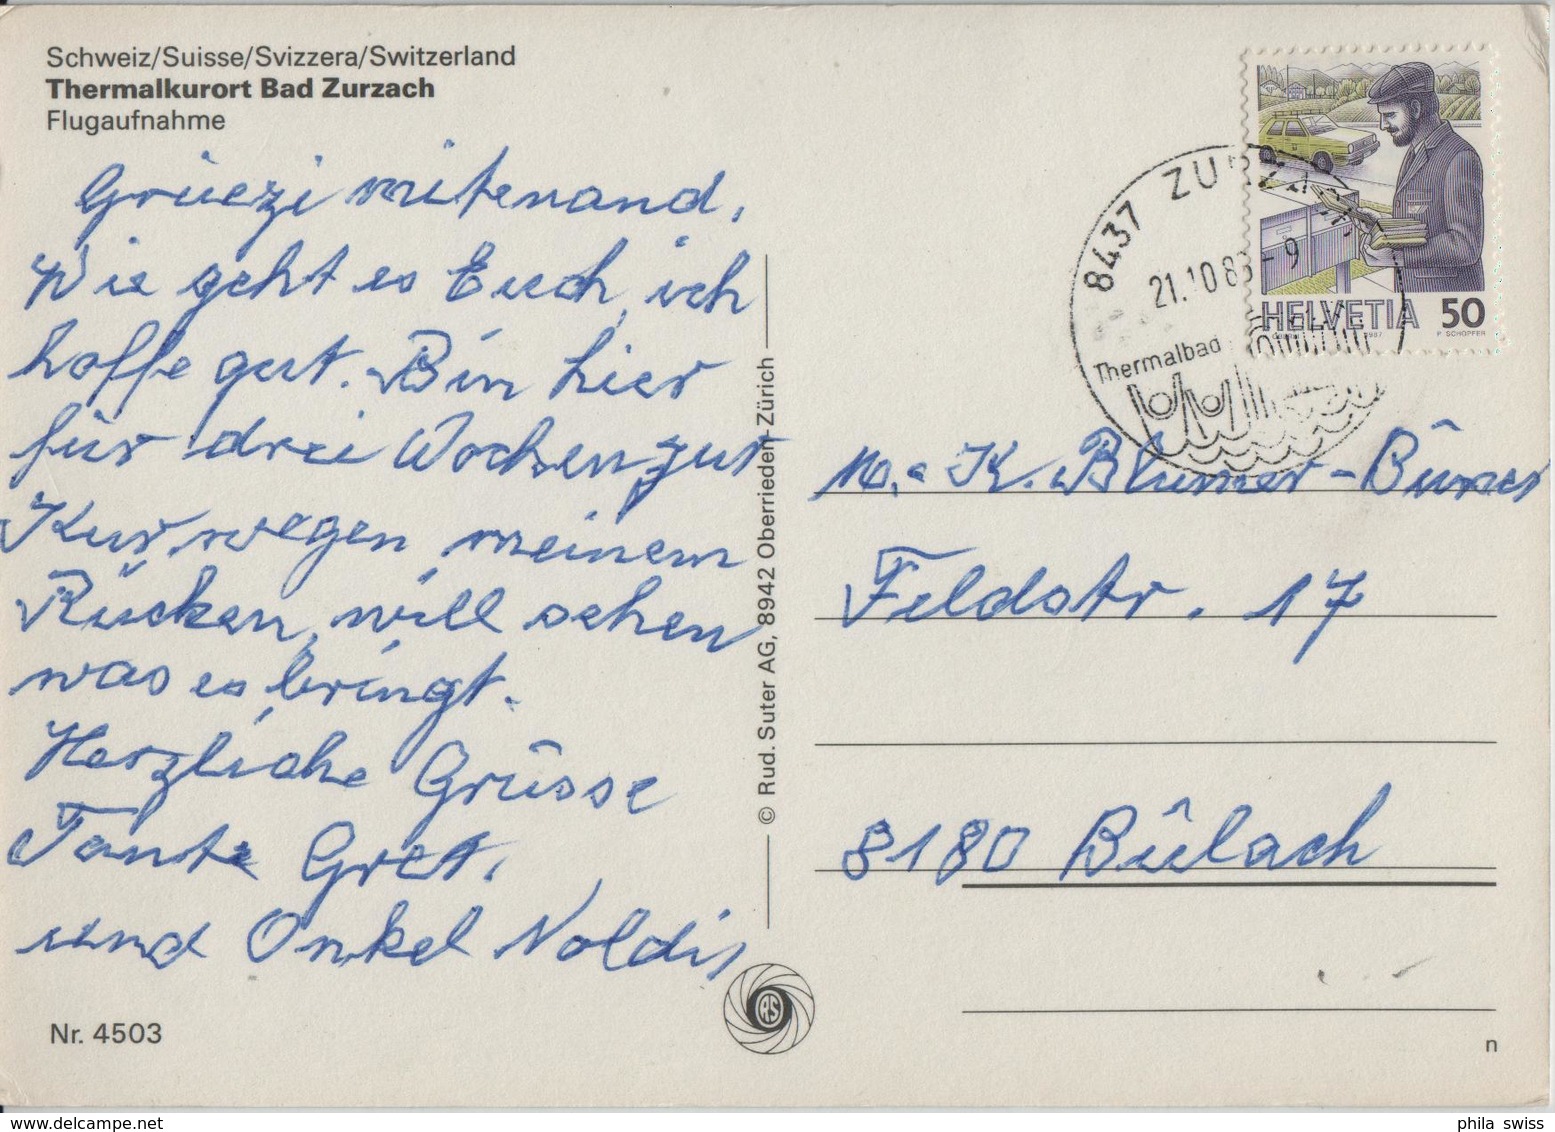 Schweiz/Suisse/Svizzera/Switzerland
Thermalkurort Bad Zurzach
Flugaufnahme
Grüezi mitenand,
Wie geht es Euch, ich
hoffe gut. Bin hier
für drei Wochen, zur
Kur, wegen meinem
Rücken, will sehen
was es bringt.
Herzliche Grüsse
Tante Gret,
und Onkel Noldi
Nr. 4503
© Rud. Suter AG, 8942 Oberrieden-Zürich
RS
8437 ZURZACH
21.10.88-9
Thermalbad
HELVETIA 50
1987 P. SCHOPFER
K. Blumer-
Feldstr. 17
8180 Bülach
n
phila swiss